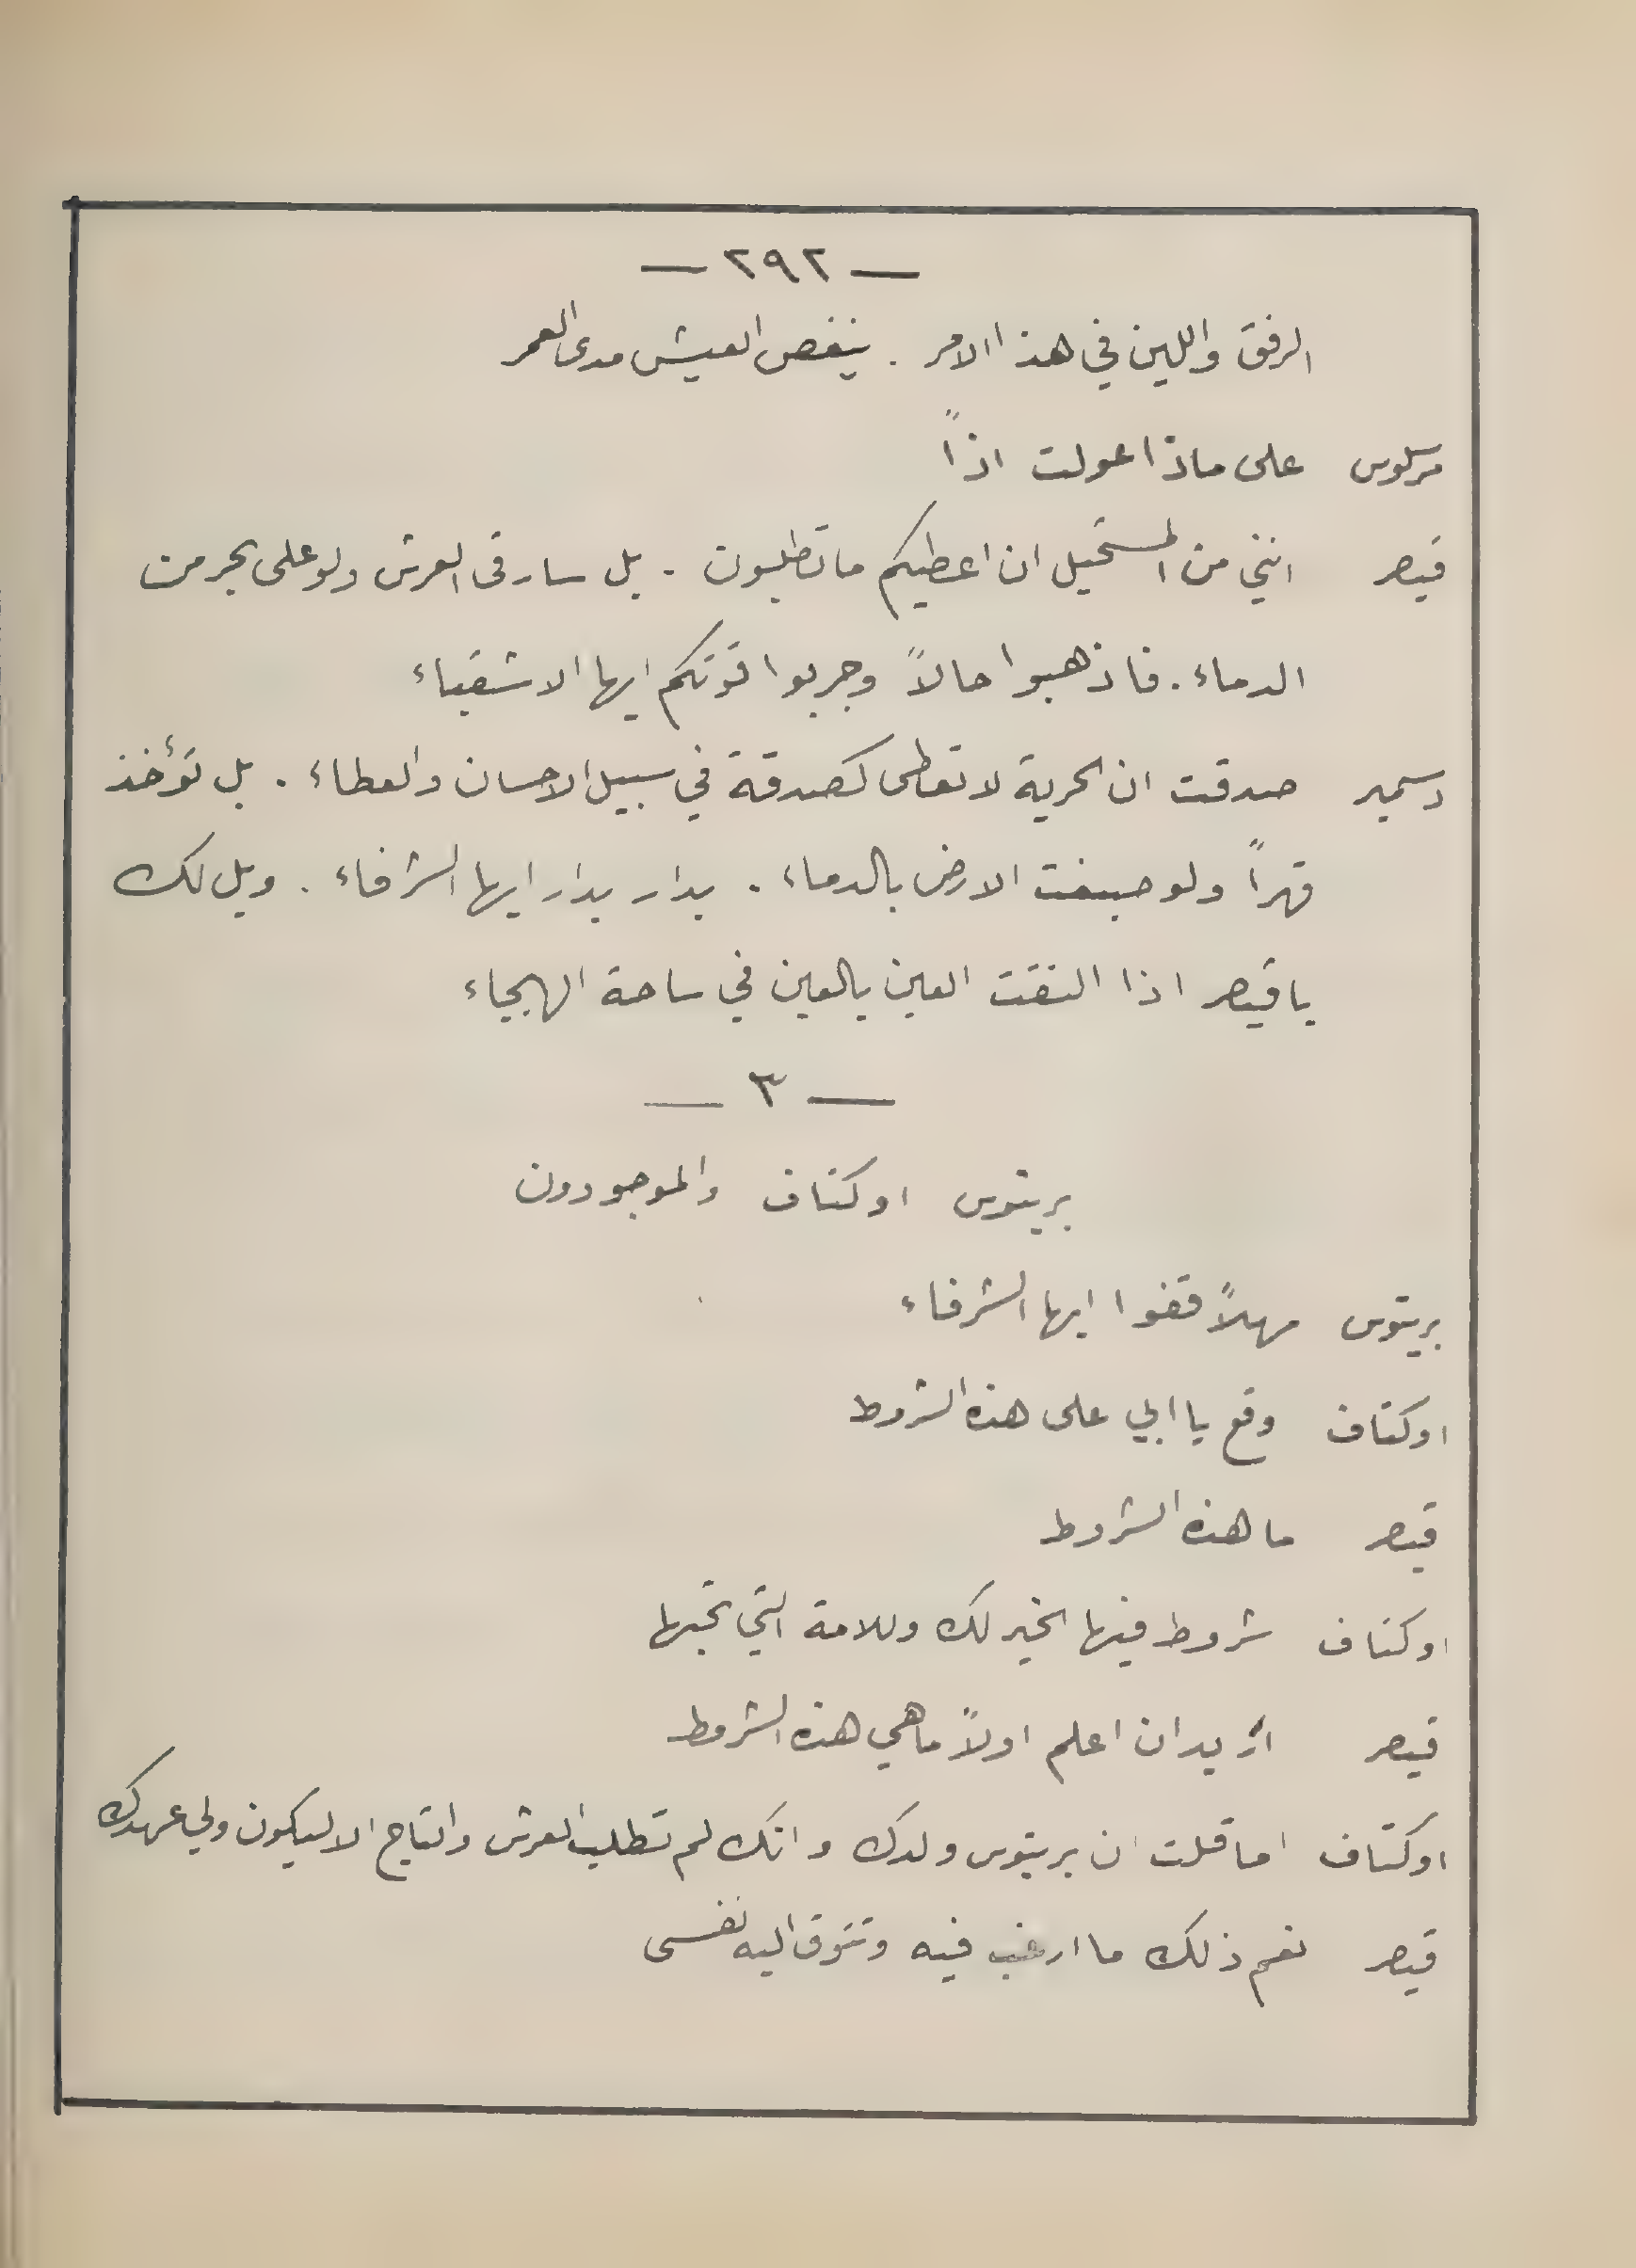 — ٢٩٢ —
الرفق واللين في هذا الامر . ينغص العيش مدى العمر
مرسلوس على ماذا عولت اذاً
قيصر انني من المستحيل ان اعطيكم ما تطلبون . بل سارقى العرش ولو على بحر من
الدماء . فاذهبوا حالاً وجربوا قوتكم ايها الاشقياء
دسمير صدقت ان الحرية لا تعطى كصدقة في سبيل الاحسان والعطاء . بل تؤخذ
قهراً ولو صبغت الارض بالدماء . بدار بدار ايها الشرفاء . ويل لك
يا قيصر اذا التقت العين بالعين في ساحة الهيجاء
— ٣ —
بريتوس اوكتاف والموجودون
بريتوس مهلاً قفوا ايها الشرفاء
اوكتاف وقع يا ابي على هذه الشروط
قيصر ما هذه الشروط
اوكتاف شروط فيها الخير لك وللامة التي تحبها
قيصر أريد ان اعلم اولاً ما هي هذه الشروط
اوكتاف اما قلت ان بريتوس ولدك وانك لم تطلب العرش والتاج الا ليكون ولي عهدك
قيصر نعم ذلك ما ارغب فيه وتتوق اليه نفسى